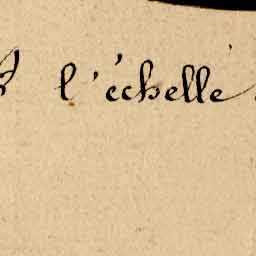 l'échelle